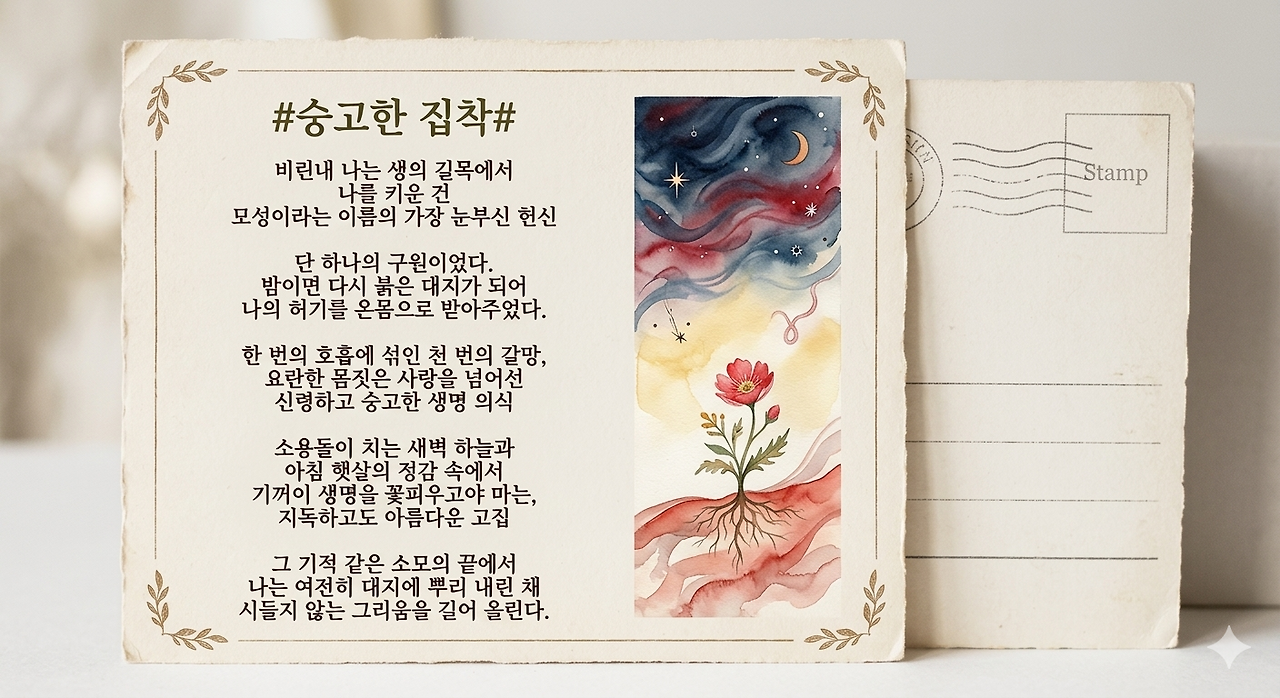 #숭고한 집착#
비린내 나는 생의 길목에서
나를 키운 건
모성이라는 이름의 가장 눈부신 헌신
단 하나의 구원이었다.
밤이면 다시 붉은 대지가 되어
나의 허기를 온몸으로 받아주었다.
한 번의 호흡에 섞인 천 번의 갈망,
요란한 몸짓은 사랑을 넘어선
신령하고 숭고한 생명 의식
소용돌이 치는 새벽 하늘과
아침 햇살의 정감 속에서
기꺼이 생명을 꽃피우고야 마는,
지독하고도 아름다운 고집
그 기적 같은 소모의 끝에서
나는 여전히 대지에 뿌리 내린 채
시들지 않는 그리움을 길어 올린다.
Stamp